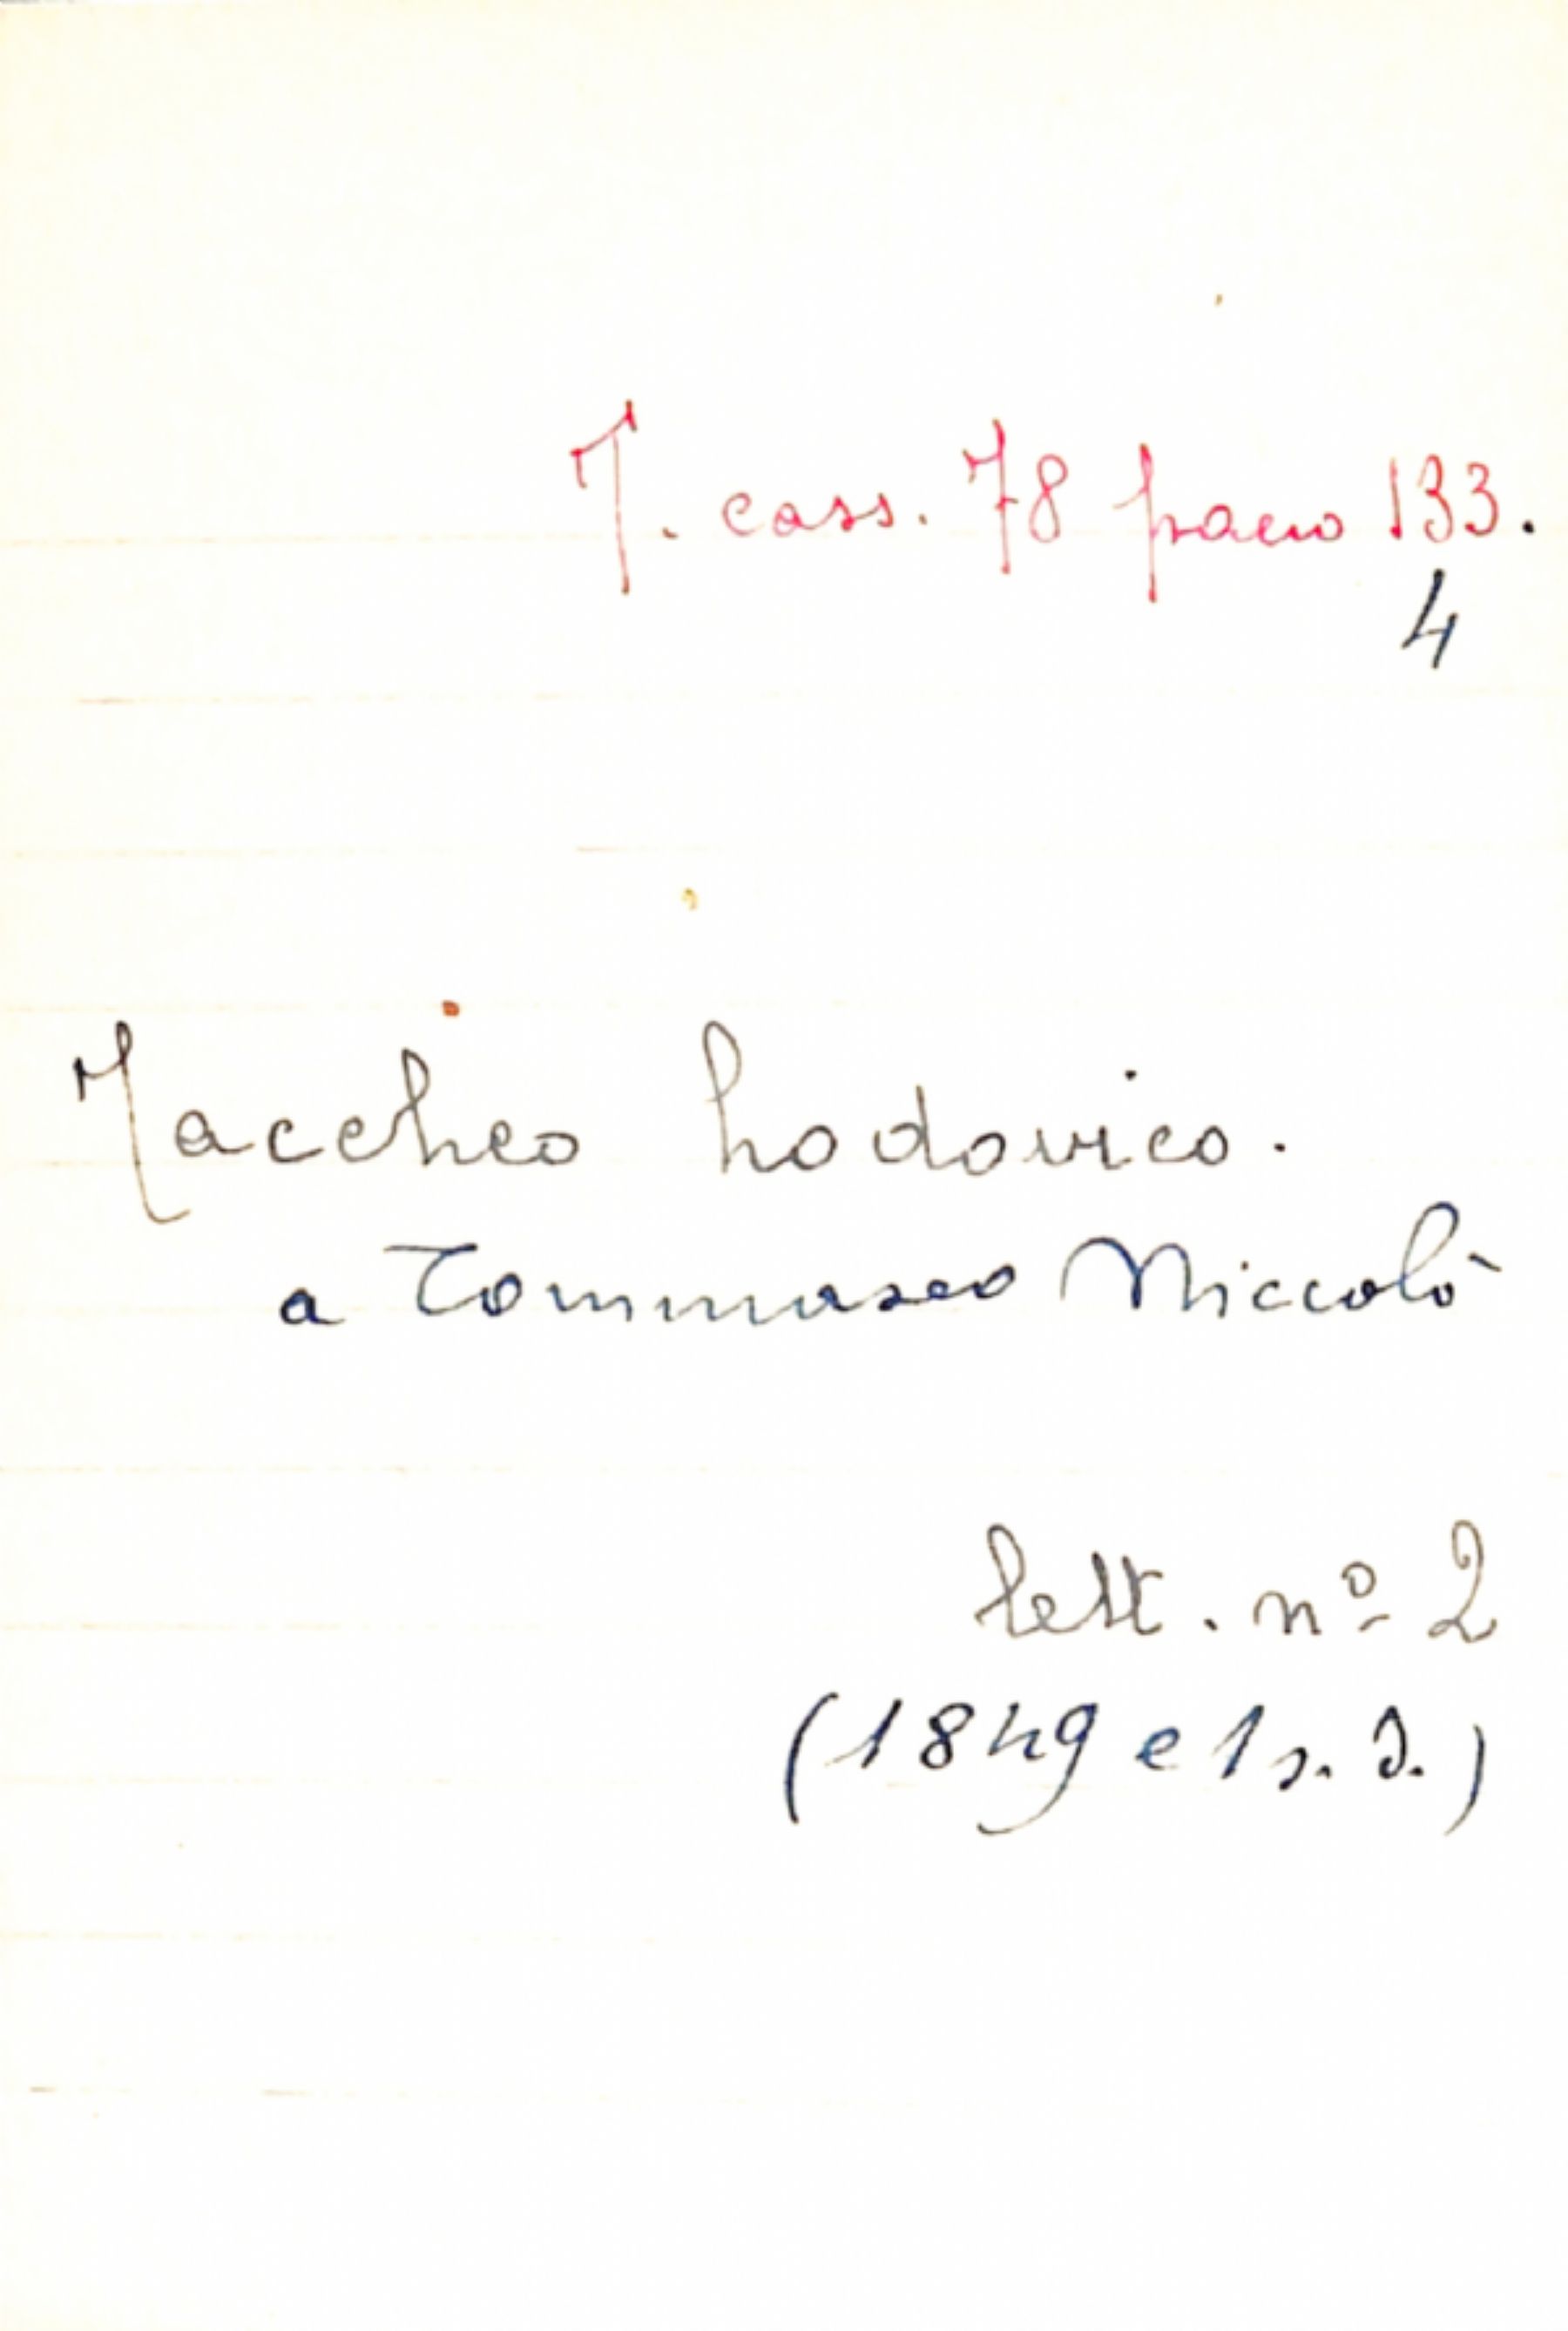 T. cass. 78 pacco 133.
4
Jaccheo Lodovico.
a Tommaseo Niccolò
lett. nº 2
(1849 e 1 s. d.)